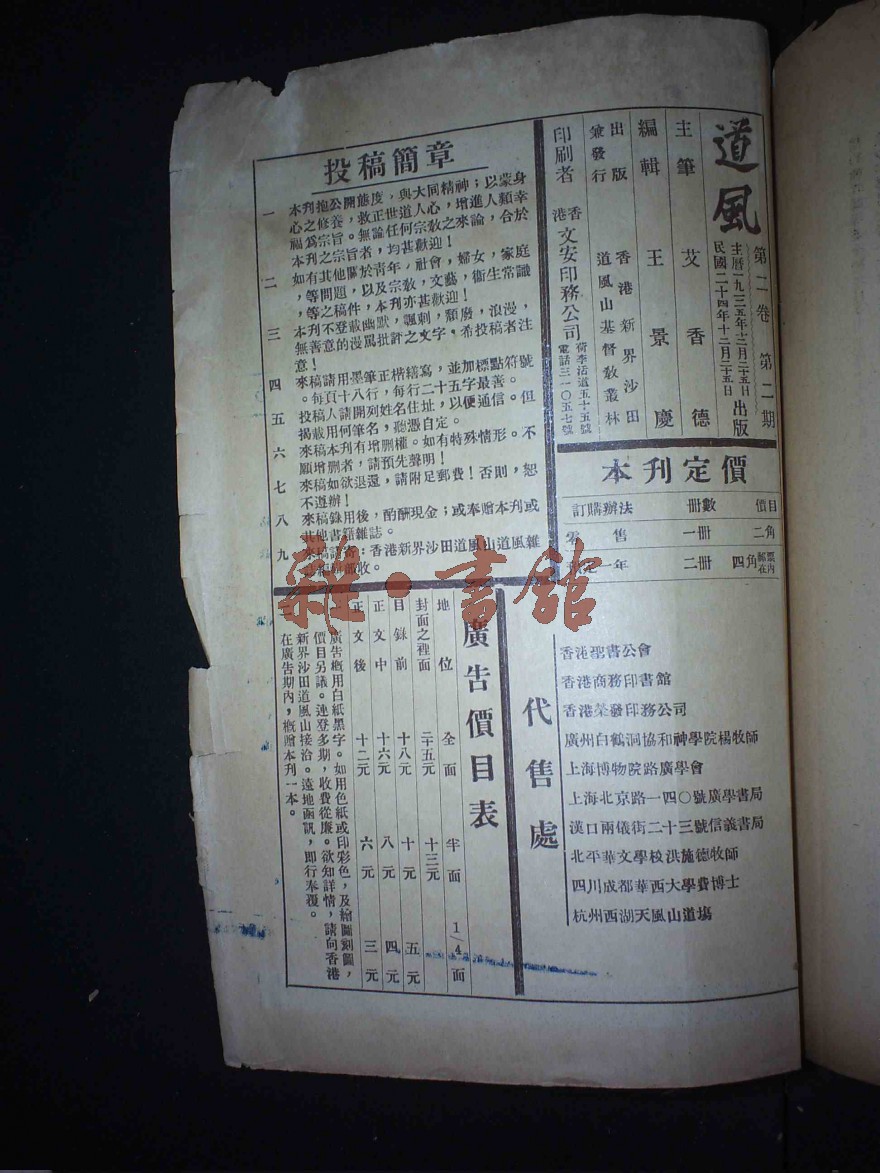 道風
第二卷 第二期
主曆一九三五年十二月二十五日
民國二十四年十二月二十五日
出版
主筆 艾香德
編輯 王景慶
出版兼發行 香港新界沙田道風山基督教叢林
印刷者 香港文安印務公司
荷李活道五十五號
電話三一〇五七號
本刊定價
訂購辦法 冊數 價目
零售 一冊 二角
一年 二冊 四角 郵票在內
投稿簡章
一 本刊抱公開態度,與大同精神;以蒙身
心之修養,救正世道人心,增進人類幸
福為宗旨。無論任何宗教之來論,合於
本刊之宗旨者,均甚歡迎!
二 如有其他關於青年,社會,婦女,家庭
,等問題,以及宗教,文藝,衛生常識
,等之稿件,本刊亦甚歡迎!
三 本刊不登載幽默,諷刺,頹廢,浪漫,
無善意的漫罵批評之文字。希投稿者注
意!
四 來稿請用墨筆正楷繕寫,並加標點符號
。每頁十八行,每行二十五字最善。
五 投稿人請開列姓名住址,以便通信。但
揭載用何筆名,聽憑自定。
六 來稿本刊有增刪權。如有特殊情形。不
願增刪者,請預先聲明!
七 來稿如欲退還,請附足郵費!否則,恕
不遵辦!
八 來稿錄用後,酌酬現金;或奉贈本刊或
其他書籍雜誌。
九 來稿請寄:香港新界沙田道風山道風雜
收。
代售處
香港聖書公會
香港商務印書館
香港榮發印務公司
廣州白鶴洞協和神學院楊牧師
上海博物院路廣學會
上海北京路一四〇號廣學書局
漢口兩儀街二十三號信義書局
北平華文學校洪施德牧師
四川成都華西大學費博士
杭州西湖天風山道場
廣告價目表
地位 全面 半面 1/4面
封面之裡面 二十五元 十三元
目錄前 十八元 十元 五元
正文中 十六元 八元 四元
正文後 十二元 六元 三元
廣告概用白紙黑字。如用色紙或印彩色,及繪圖刻圖,
價目另議。連登多期,收費從廉。欲知詳情,請向香港
新界沙田道風山接洽。遠地函訊,即行奉覆。
二 在廣告期內,概贈本刊一本。
雜·書館